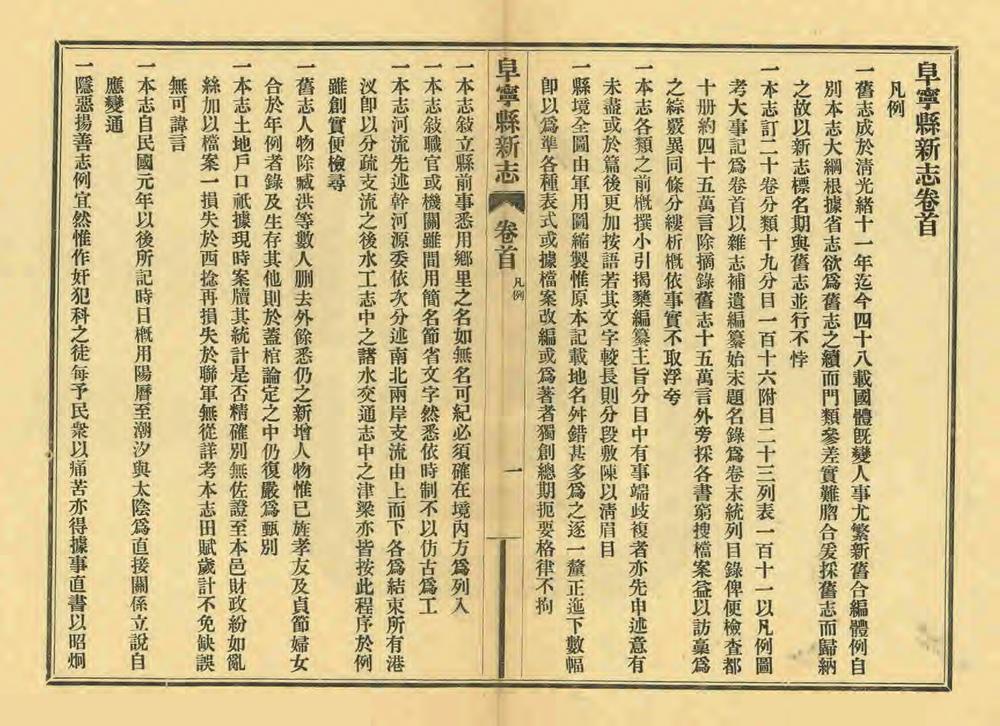 阜寧縣新志卷首
凡例
一舊志成於清光緒十一年迄今四十八載國體既變人事尤繁新舊合編體例自
別本志大綱根據省志欲爲舊志之續而門類參差實難脗合爰採舊志而歸納
之故以新志標名期與舊志並行不悖
一本志訂二十卷分類十九分目一百十六附目二十三列表一百十一以凡例圖
考大事記爲卷首以雜志補遺編纂始末題名錄爲卷末統列目錄俾便檢查都
十册約四十五萬言除摘錄舊志十五萬言外旁採各書窮搜檔案益以訪稾爲
之綜嚴異同條分縷析概依事實不取浮夸
一本志各類之前概撰小引揭櫫編纂主旨分目中有事端歧複者亦先申述意有
未盡或於篇後更加按語若其文字較長則分段敷陳以清眉目
一縣境全圖由軍用圖縮製惟原本記載地名舛錯甚多爲之逐一釐正迤下數幅
卽以爲準各種表式或據檔案改編或爲著者獨創總期扼要格律不拘
阜寧縣新志
卷首
凡例
一
一本志敍立縣前事悉用鄉里之名如無名可紀必須確在境內方爲列入
一本志敍職官或機關雖間用簡名節省文字然悉依時制不以仿古爲工
一本志河流先述幹河源委依次分述南北兩岸支流由上而下各爲結束所有港
汊卽以分疏支流之後水工志中之諸水交通志中之津梁亦皆按此程序於例
雖創實便檢尋
一舊志人物除臧洪等數人刪去外餘悉仍之新增人物惟已旌孝友及貞節婦女
合於年例者錄及生存其他則於蓋棺論定之中仍復嚴爲甄別
一本志土地戶口祇據現時案牘其統計是否精確別無佐證至本邑財政紛如亂
絲加以檔案一損失於西捻再損失於聯軍無從詳考本志田賦歲計不免缺誤
無可諱言
一本志自民國元年以後所記時日概用陽曆至潮汐與太陰爲直接關係立說自
應變通
一隱惡揚善志例宜然惟作奸犯科之徒每予民衆以痛苦亦得據事直書以昭炯